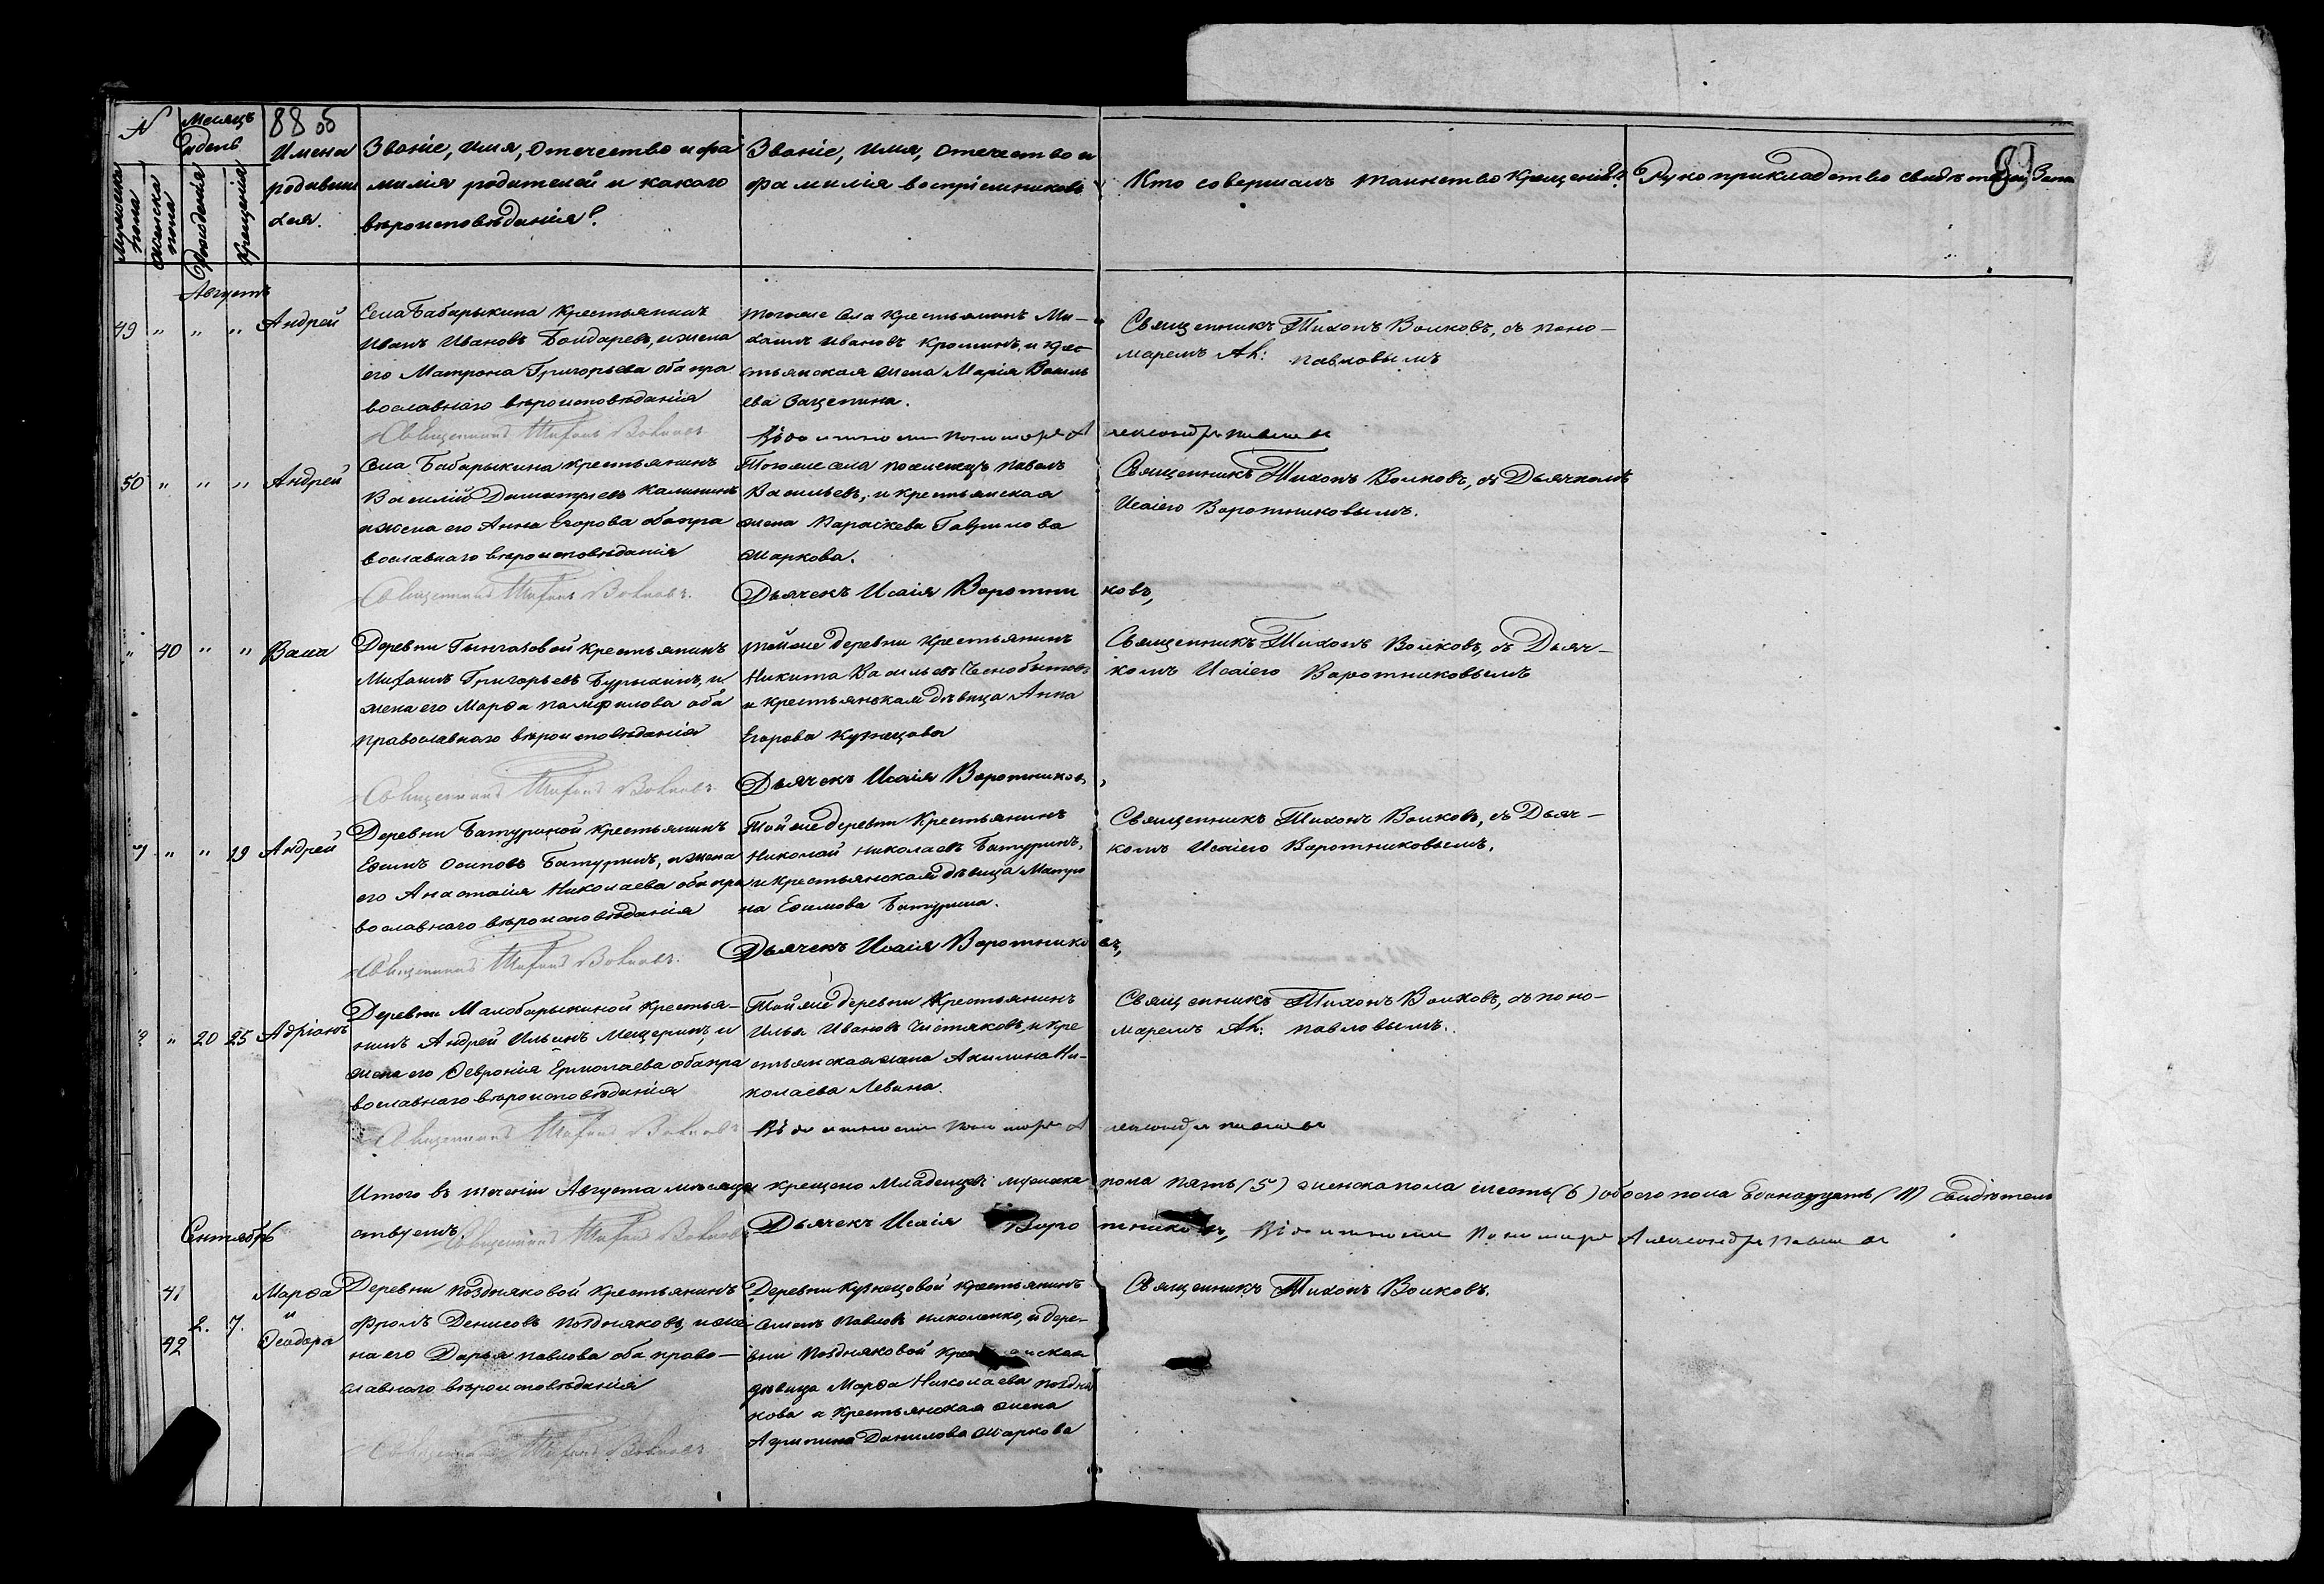 №
Месяцъ
и день
88 об
Имена
родивши
хся.
Званіе, имя, отечество и фа
милія родителей и какого
вѣроисповѣданія?
Званіе, имя, отечество и
фамилія воспріемниковъ
Кто совершалъ таинство Крещенія?
Рукоприкладство свидѣтелей
89
Мужеска пола
Женска пола
Рожденія
Крещенія
Августъ
49 " " " Андрей
Села Бабарыкина крестьянинъ
Иванъ Ивановъ Бондаревъ, и жена
его Матрона Григорьева оба пра
вославнаго вѣроисповѣданія
Священникъ Тихонъ Волковъ
тогоже села крестьянинъ Ми-
хаилъ Ивановъ и крес
стьянская жена Марія Василь
ева Защепина.
пономарь Александръ Павловъ
Священникъ Тихонъ Волковъ, съ поно-
маремъ Ал: Павловымъ
50 " " " Андрей
Села Бабарыкина крестьянинъ
Василій Димитріевъ Калининъ
и жена его Анна Егорова оба пра
вославнаго вѣроисповѣданія
Священникъ Тихонъ Волковъ.
Тогоже села поселенецъ Павелъ
Васильевъ, и крестьянская
жена Параскева Гаврилова
Маркова.
Дьячекъ Исаія Воротниковъ,
Священникъ Тихонъ Волковъ, съ Дьячкомъ
Исаіею Воротниковымъ.
" 40 " " Васса
Деревни крестьянинъ
Михаилъ Григорьевъ Бурыхинъ, и
жена его Марѳа Памфилова оба
православнаго вѣроисповѣданія
Священникъ Тихонъ Волковъ
тойже деревни крестьянинъ
Никита Васильевъ
и крестьянская дѣвица Анна
Егорова Кузнецова
Дьячекъ Исаія Воротниковъ,
Священникъ Тихонъ Волковъ, съ Дьяч-
комъ Исаіею Воротниковымъ
" " 19 Андрей
Деревни Батуриной крестьянинъ
Еѳимъ Осиповъ Батуринъ, и жена
его Анастасія Николаева оба пра
вославнаго вѣроисповѣданія
Священникъ Тихонъ Волковъ.
Тойже деревни Крестьянинъ
Николай Николаевъ Батуринъ,
и крестьянская дѣвица Матро
на Еѳимова Батурина.
Дьячекъ Исаія Воротниковъ,
Священникъ Тихонъ Волковъ, съ Дьяч-
комъ Исаіею Воротниковымъ.
" 20 25 Адріанъ
Деревни Малобарыкиной крестья-
нинъ Андрей Ильинъ Мещеринъ, и
жена его Ѳевронія Ермолаева оба пра
вославнаго вѣроисповѣданія
Священникъ Тихонъ Волковъ
Тойже деревни Крестьянинъ
Илья Ивановъ Чистяковъ, и кре
стьянская жена Акилина Ни-
колаева Левина.
пономарь Александръ Павловъ
Священникъ Тихонъ Волковъ, съ поно-
маремъ Ал: Павловымъ.
Итого въ теченіи Августа мѣсяца крещено Младенцевъ мужеска пола пять (5) женска пола шесть (6) обоего пола одинадцать (11) Свидѣтель
ствуемъ. Священникъ Тихонъ Волковъ Дьячекъ Исаія Воротниковъ, Пономарь Александръ Павловъ
Сентябрь
41
42
2. 7.
Марѳа
и
Ѳеодора
Деревни Поздняковой крестьянинъ
Фролъ Денисовъ Поздняковъ, и же
на его Дарья Павлова оба право-
славнаго вѣроисповѣданія
Священникъ Тихонъ Волковъ
Деревни Кузнецовой крестьянинъ
Павловъ Николенко, и дере-
вни Поздняковой
дѣвица Марѳа Николаева Поздня
кова и Крестьянская жена
Агрипина Данилова Маркова
Священникъ Тихонъ Волковъ.